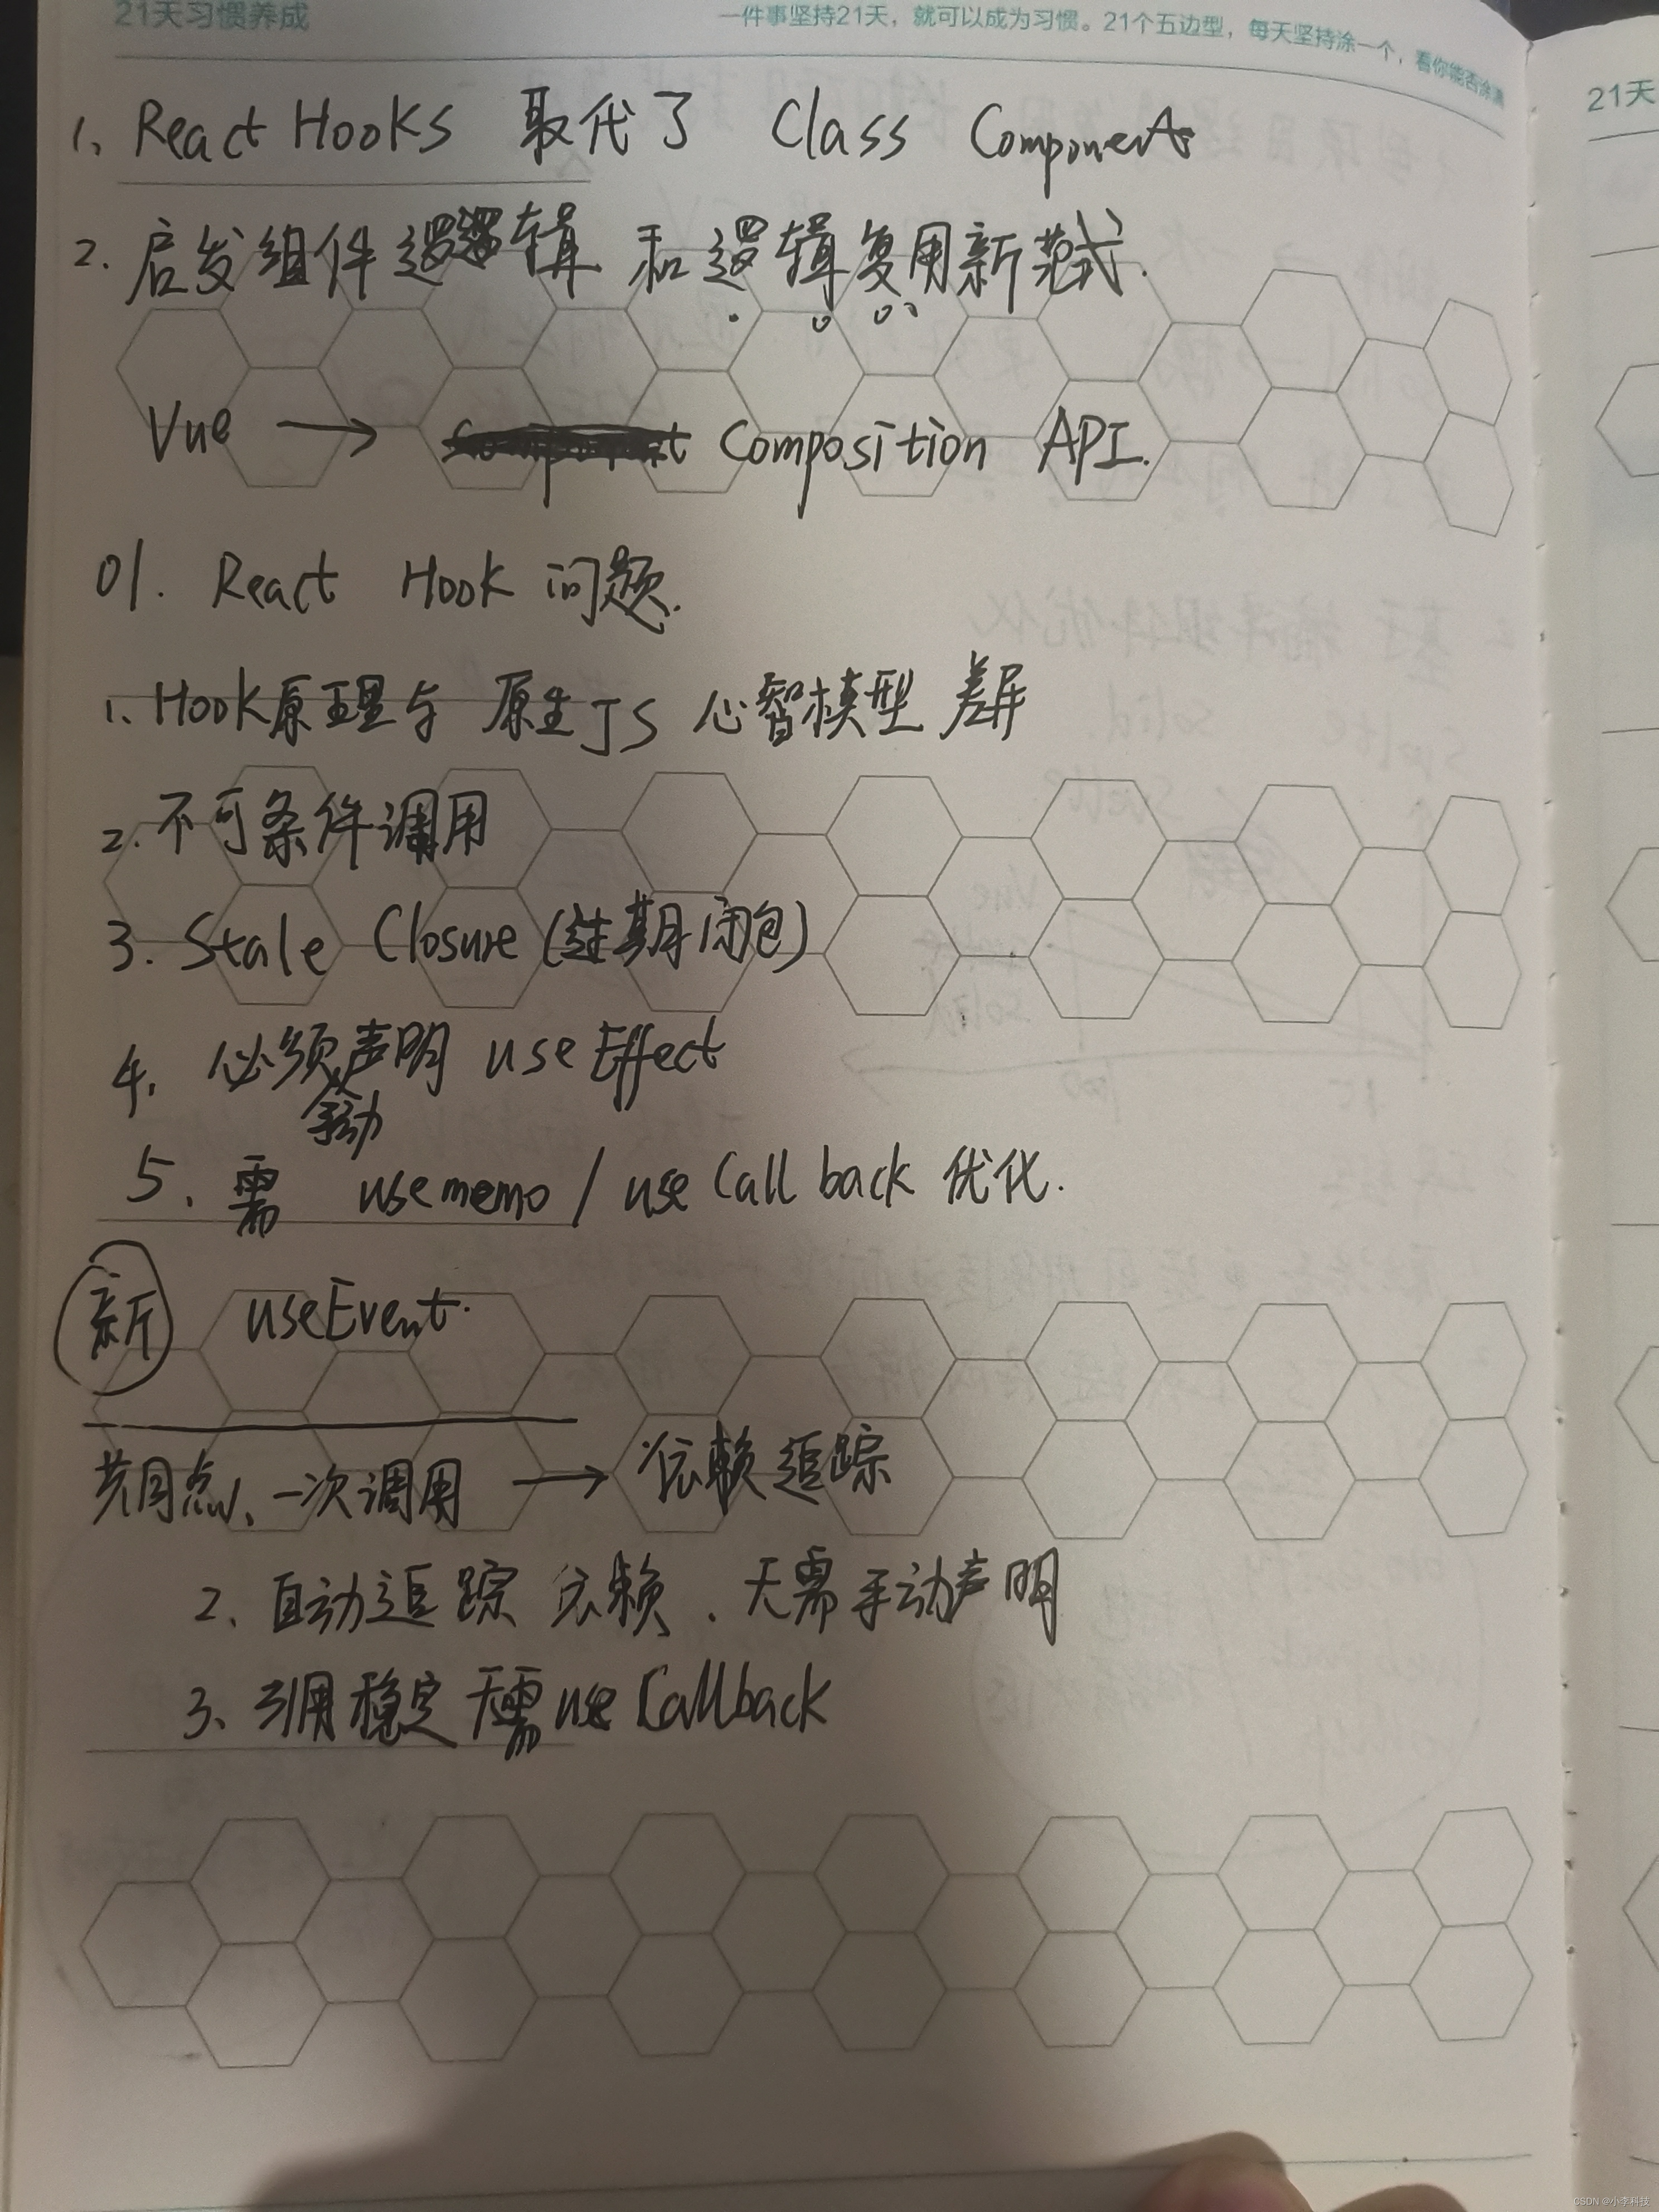 21天习惯养成
一件事坚持21天，就可以成为习惯。21个五边型，每天坚持涂一个，看你能否涂满
21天
1、React Hooks 取代了 Class Components
2. 启发组件逻辑 和逻辑复用新范式.
Vue → Composition API.
01. React Hook 问题.
1、Hook原理与 原生JS 心智模型 差异
2.不可条件调用
3. Stale Closure (过期闭包)
4、必须手动声明 useEffect
5、需 usememo / useCallback 优化.
新 useEvent.
共同点、一次调用 → 依赖追踪
2、自动追踪 依赖、无需手动声明
3、引用稳定 无需 useCallback
CSDN @小李科技